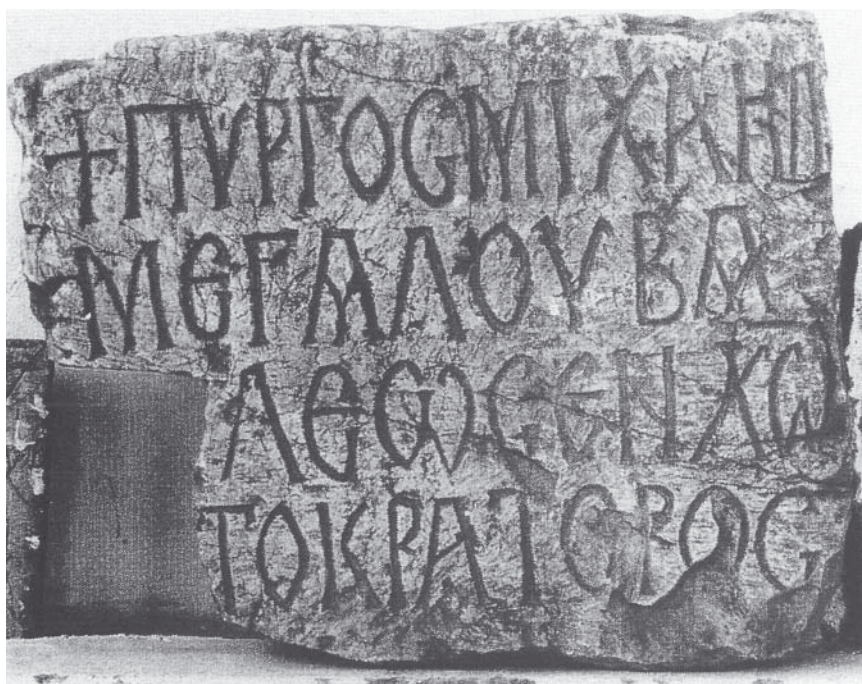 + ΠΥΡΓΟϹ ΜΙΧΑΗΛ
ΜΕΓΑΛΟΥ ΒΑ
ΛΕѠϹ ΕΝ ΧѠ
ΤΟΚΡΑΤΟΡΟϹ